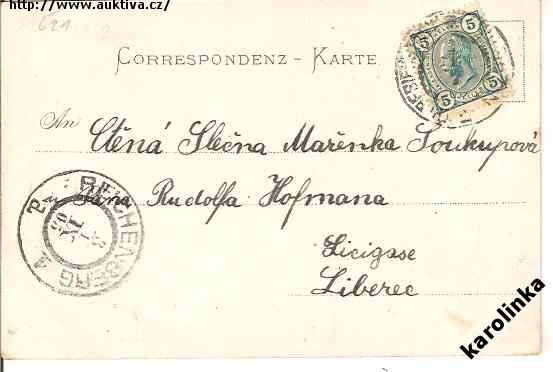 http://www.auktiva.cz/
621
CORRESPONDENZ - KARTE
An Ctěná Slečna Mařenka Soukupová
p. u Pana Rudolfa Hofmana
Liberec
REICHENBERG
5 5
5 5
karolinka